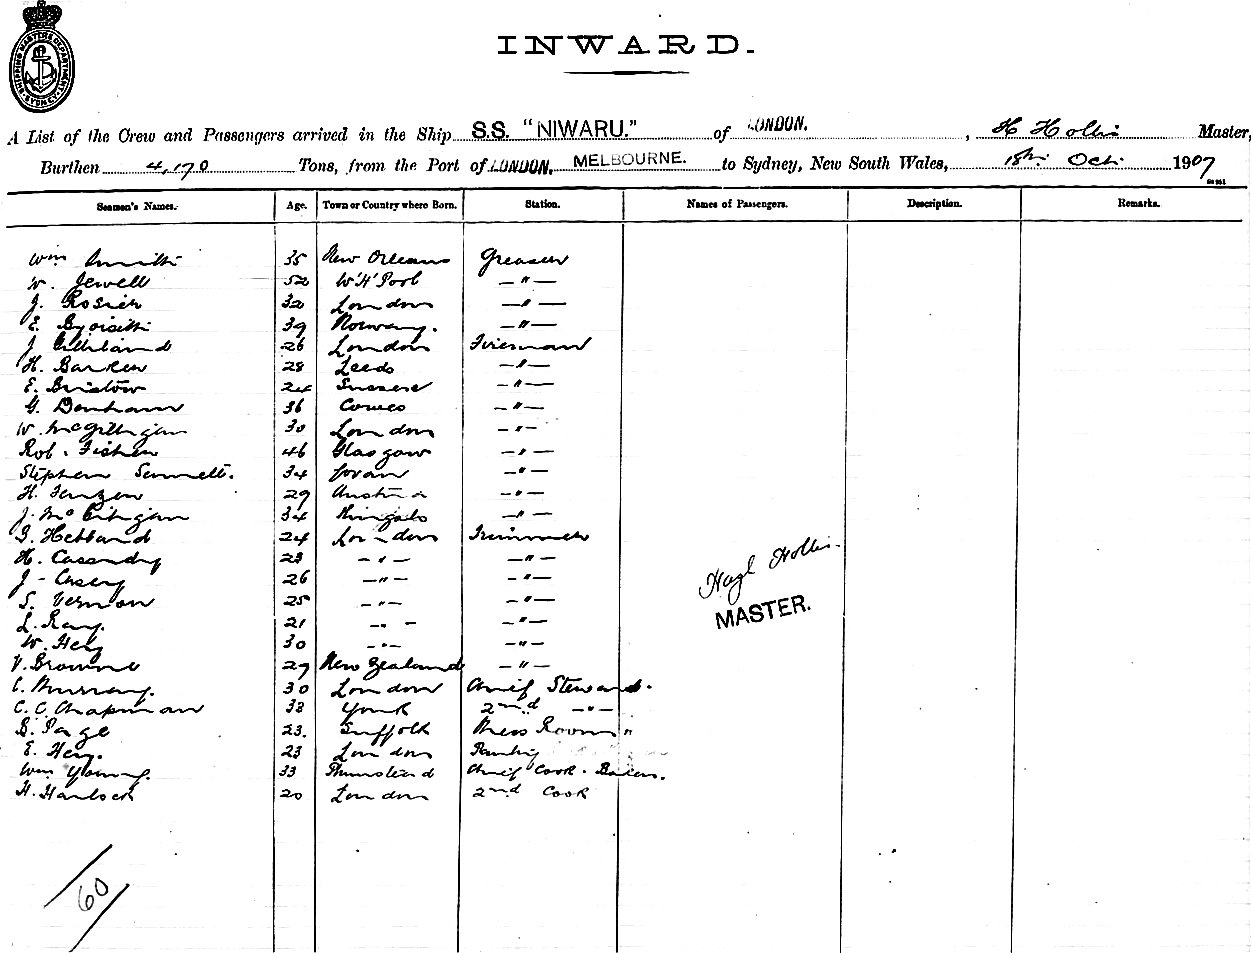 SHIPPING MASTERS DEPARTMENT SYDNEY
INWARD.
A List of the Crew and Passengers arrived in the Ship S.S. "NIWARU." of LONDON, H Hollis Master,
Burthen 4,170 Tons, from the Port of LONDON, MELBOURNE. to Sydney, New South Wales, 18th Oct. 1907
Seamen's Names. Age. Town or Country where Born. Station. Names of Passengers. Description. Remarks.
Wm Smith 35 New Orleans Greaser
W. Jewell 52 W'H'Pool — " —
J. Rosier 32 London — " —
E. 39 Norway. — " —
J 26 London Fireman
H. Barker 28 Leeds — " —
E. Bristow 24 Sussex — " —
G. Denham 36 Cowes — " —
W. McGilligan 30 London — " —
Rob. Fisher 46 Glasgow — " —
Stephen Sennett. 34 Govan — " —
H. Jenzen 29 Austria — " —
J. 34 — " —
24 London Trimmer
H. Cassidy 23 — " — — " —
J - Casey 26 — " — — " —
S. Vernon 25 — " — — " —
L. Ray. 21 — " — — " —
W. Hey 30 — " — — " —
V. Browne 29 New Zealand — " —
C. Murray. 30 London Chief Steward.
C. C. Chapman 32 York 2nd — " —
B. Page 23. Suffolk Mess Room "
E. Hey. 23 London Pantry
Wm Young. 33 Plumstead Chief Cook - Baker.
H. Harlock 20 London 2nd Cook
Hollis.
MASTER.
60